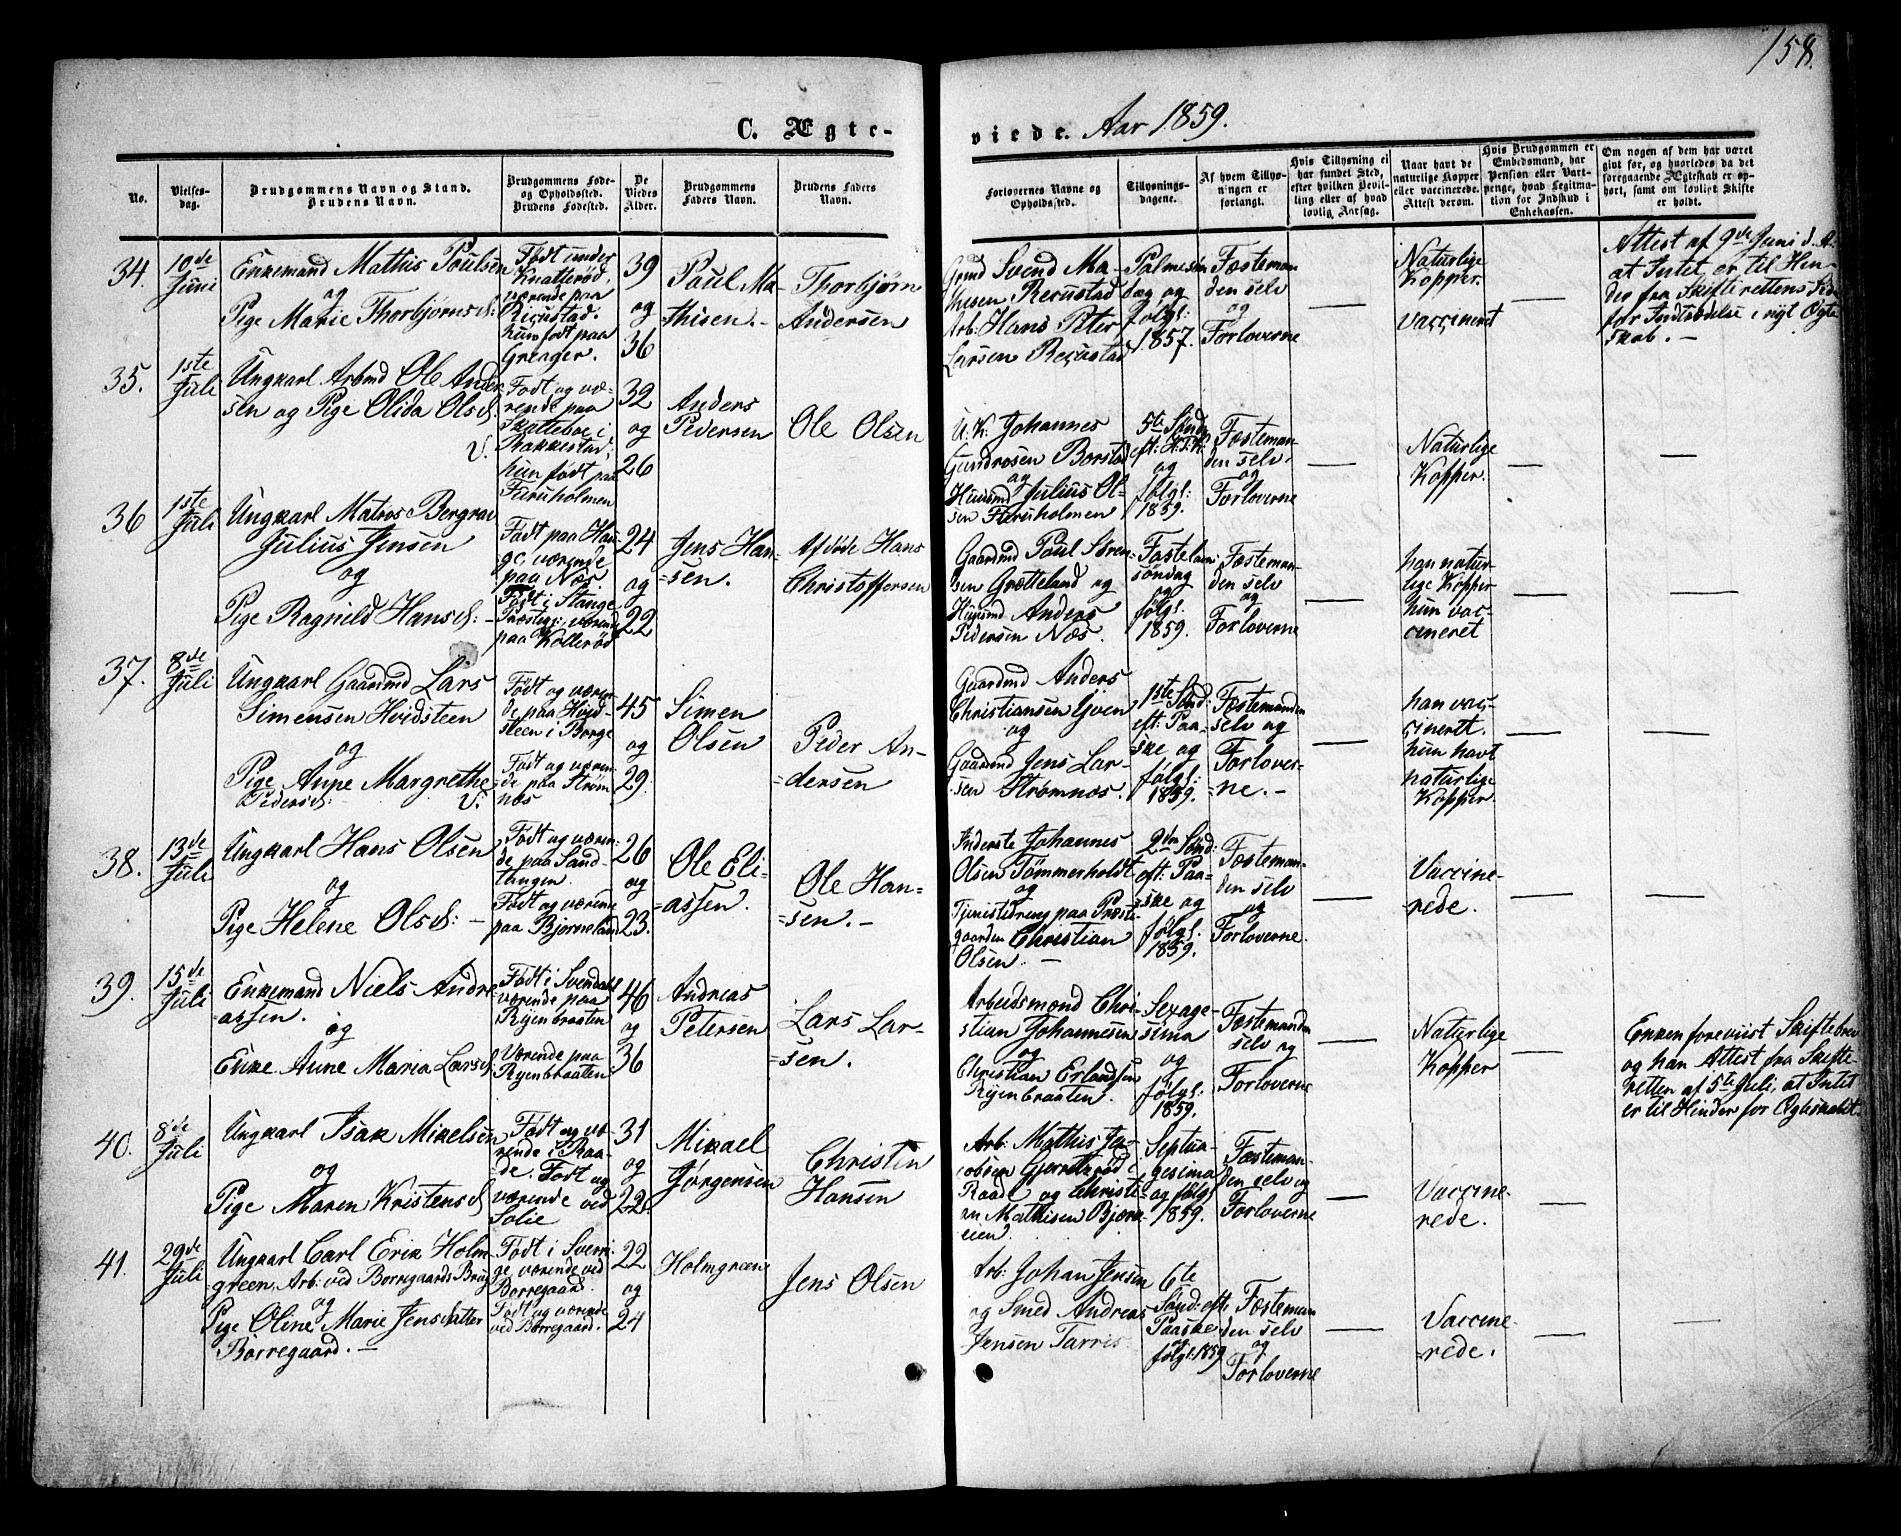 158.
C. Ægte-
viede. Aar 1859.
No.
Vielses-
dag.
Brudgommens Navn og Stand.
Brudens Navn.
Brudgommens Føde-
og Opholdssted.
Brudens Fødested.
De
Viedes
Alder.
Brudgommens
Faders Navn.
Brudens Faders
Navn.
Forlovernes Navne og
Opholdssted.
Tillysnings-
dagene.
Af hvem Tillys-
ningen er
forlangt.
Hvis Tillysning ei
har fundet Sted,
efter hvilken Bevil-
ling eller af hvad
lovlig Aarsag.
Naar havt de
naturlige Kopper
eller vaccinerede.
Attest derom.
Hvis Brudgommen er
Embedsmand, har
Pension eller Vart-
penge, hvad Legitma-
tion for Indskud i
Enkekassen.
Om nogen af dem har været
givt før, og hvorledes da det
foregaaende Ægteskab er op-
hørt, samt om lovligt Skifte
er holdt.
34.
10de
Juni
Enkemand Mathis Poulsen
og
Pige Marie Thorbjørnsd:
Født under
Knatterød,
værende paa
hun født paa
Grenger.
39
og
36
Poul Ma-
thisen.-
Thorbjørn
Andersen
Gmd Svend Ma-
thisen
Arb: Hans Peter
Larsen
Palmesøn
dag og
følgl:
1857.
Fæsteman
den selv
og
Forloverne
Naturlige
Kopper.
vaccineret
Attest af 9de Juni d. A.
at Intet er til Hin-
der fra Skifterettens Side
for Indtrædelse i nyt Ægte
skab. -
35.
1ste
Juli
Ungkarl Arbmd Ole Ander
sen og Pige Olida Olsd.
V.
Født og væ-
rende paa
Skatteboe i
Rakkestad,
hun født paa
Furuholmen
32
og
26
Anders
Pedersen
Ole Olsen
U.K. Johannes
Gundrosen Borstad
og
Huusmd Julius Ol-
sen Furuholmen
5te Sønd:
eft: H.T.K.
og
følgl:
1859.
Fæsteman-
den selv
og
Forloverne
Naturlige
Kopper.
36
1ste
Juli
Ungkarl Matros Bergrav
Julius Jensen
og
Pige Ragnild Hansd: -
Født paa Hau-
ge, værende
paa Næs
Født i Stange
Præsteg: værende
paa Kollerød
24
og
22
Jens Han-
=sen.
Afdøde Hans
Christoffersen
Gaardmd Poul Søren-
sen Grætteland og
Huusmd Anders
Pedersen Næs.
Fastelavns
søndag
og
følgl.
1859.
Fæsteman-
den selv
og
Forloverne
han natur-
lige Kopper
hun vac-
cineret
37.
8de
Juli
Ungkarl Gaardmd Lars
Simensen Hvidsteen
og
Pige Anne Margrethe
Pedersd:
V.
Født og væren-
de paa Hvid-
steen i Borge
Født og væren-
de paa Strøm-
næs
45
og
29.
Simen
Olsen
Peder An-
=dersen
Gaardmd Anders
Christiansen
og
Gaardmd Jens Lar-
sen Strømnæs.
1ste Sønd:
eft: Paa-
ske og
følgl:
1859.
Fæstemanden
selv og
Forlover-
=ne.-
han vac-
cineret.
hun havt
naturlige
Kopper.
38.
13de
Juli
Ungkarl Hans Olsen
og
Pige Helene Olsd: -
Født og væren-
de paa Sand-
tangen.
Født og værende
paa Bjørneland
26
og
23.
Ole Eli-
=assen.
Ole Han-
=sen.-
Inderste Johannes
Olsen Tømmerholdt
og
Tjenestedreng paa Præste-
gaarden Christian
Olsen. -
2den Sønd:
eft. Paa-
ske og
følgl.
1859.
Fæsteman-
den selv
og
Forloverne.
Vaccine-
rede.
39.
15de
Juli
Enkemand Niels Andre
assen.
og
Enke Anne Maria Larsd.
Født i Svendahl
værende paa
Ryenbraaten
Værende paa
Ryenbraaten
46
og
36
Andreas
Petersen
Lars Lar-
=sen.
Arbeidsmand Chri-
stian Johannesen
og
Christian Erlandsen
Ryenbraaten.
Sexage-
sima
og
følgl:
1859.
Fæstemanden
selv og
Forloverne
Naturlige
Kopper
Enken foreviist Skiftebrev
og han Attest fra Skifte
retten af 5te Juli, at Intet
er til Hinder for Ægteskabet.
40.
8de
Juli
Ungkarl Isak Mikelsen
og
Pige Maren Kristensd.
Født og væ-
rende i Raa-
de. Født og
værende ved
Solie
31
og
22.
Mikael
Jørgensen
Christen
Hansen
Arb: Mathis Ja-
cobsen
Raade og Christi-
an Mathisen Bjørn-
Septua-
gesima
og følgl
1859.
Fæsteman-
den selv og
Forloverne
Vaccine-
rede.
41.
29de
Juli
Ungkarl Carl Erik Holm
green, Arb: ved Borregaards Brug
og
Pige Oline Marie Jensdatter
Borregaard. -
Født i Sverri-
ge værende ved
Borregaard.
Født og værende
ved Borregaard.
22
og
24
Holmgreen
Jens Olsen
Arb: Johan Jensen
og Smed Andreas
Jensen Tarris
6te
Sønd: efte
Paaske
og
følgl: 1859
Fæsteman
den selv
og
Forloverne
Vaccine-
=rede.